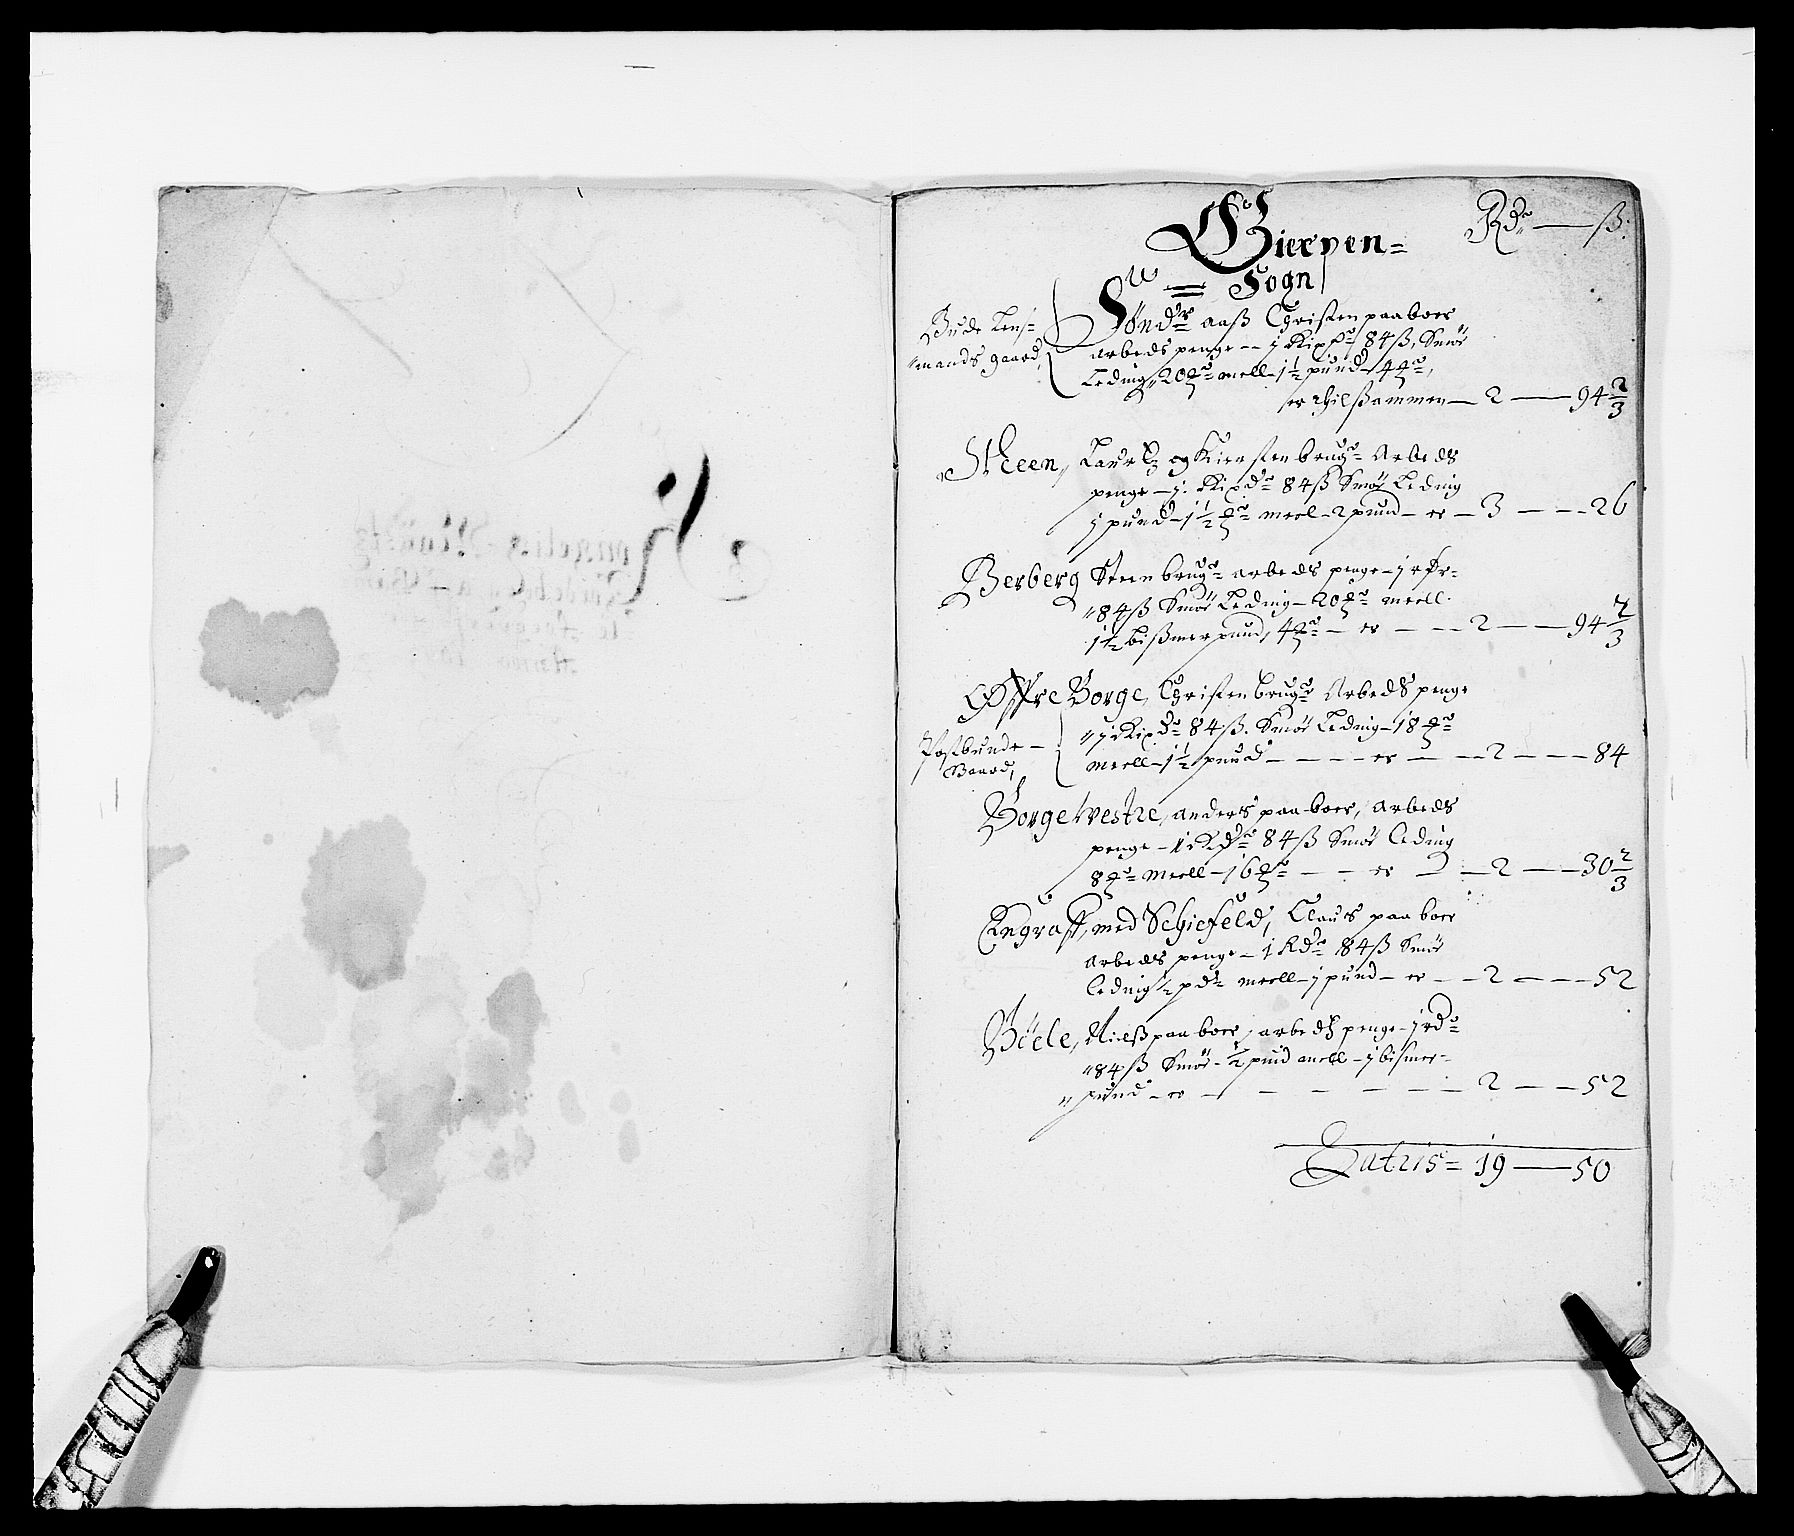 Gierpen=
Sogn
Rdr — ß.
Bude Lens=
mands gaard,
Søndr aaß Christen paaboer
arbeds penge — 1 Rixdr 84 ß, Smør
Leding, 20 mrk meell — 1½ pund 4 mrk,
er thilßammen — 2 — 94 2/3
Steen, Laurtz og Kiersten brugr Arbeds
penge — j. Rixdr 84 ß Smør Leding
j pund — 1½ meel — 2 pund — er — 3 — 26
Berberg Steen brugr arbeds penge — j
84 ß Smør Leding — 20 meell
1½ bißmer pund, 4 — er — 2 — 94 2/3
Øffre Borge, Christen brugr Arbeds penge
j Rixdr 84 ß. Smør Leding — 18
Postbunde —
Gaard,
meell — 1½ pund — er — 2 — 84
Borge Westre, anders paaboer, arbeds
penge — 1 84 ß Smør Leding
8 meell — 16 — er — 2 — 30 2/3
med Schiefeld, Claus paaboer
arbeds penge — 1 Rdr 84 ß Smør
Leding ½ pdr meell — j pund — er — 2 — 52
Bøele, Nielß paaboer, arbeds penge — j rdr
84 ß Smør — ½ pund meell — j bismer=
pund — er — 2 — 52
Latris = 19 — 50